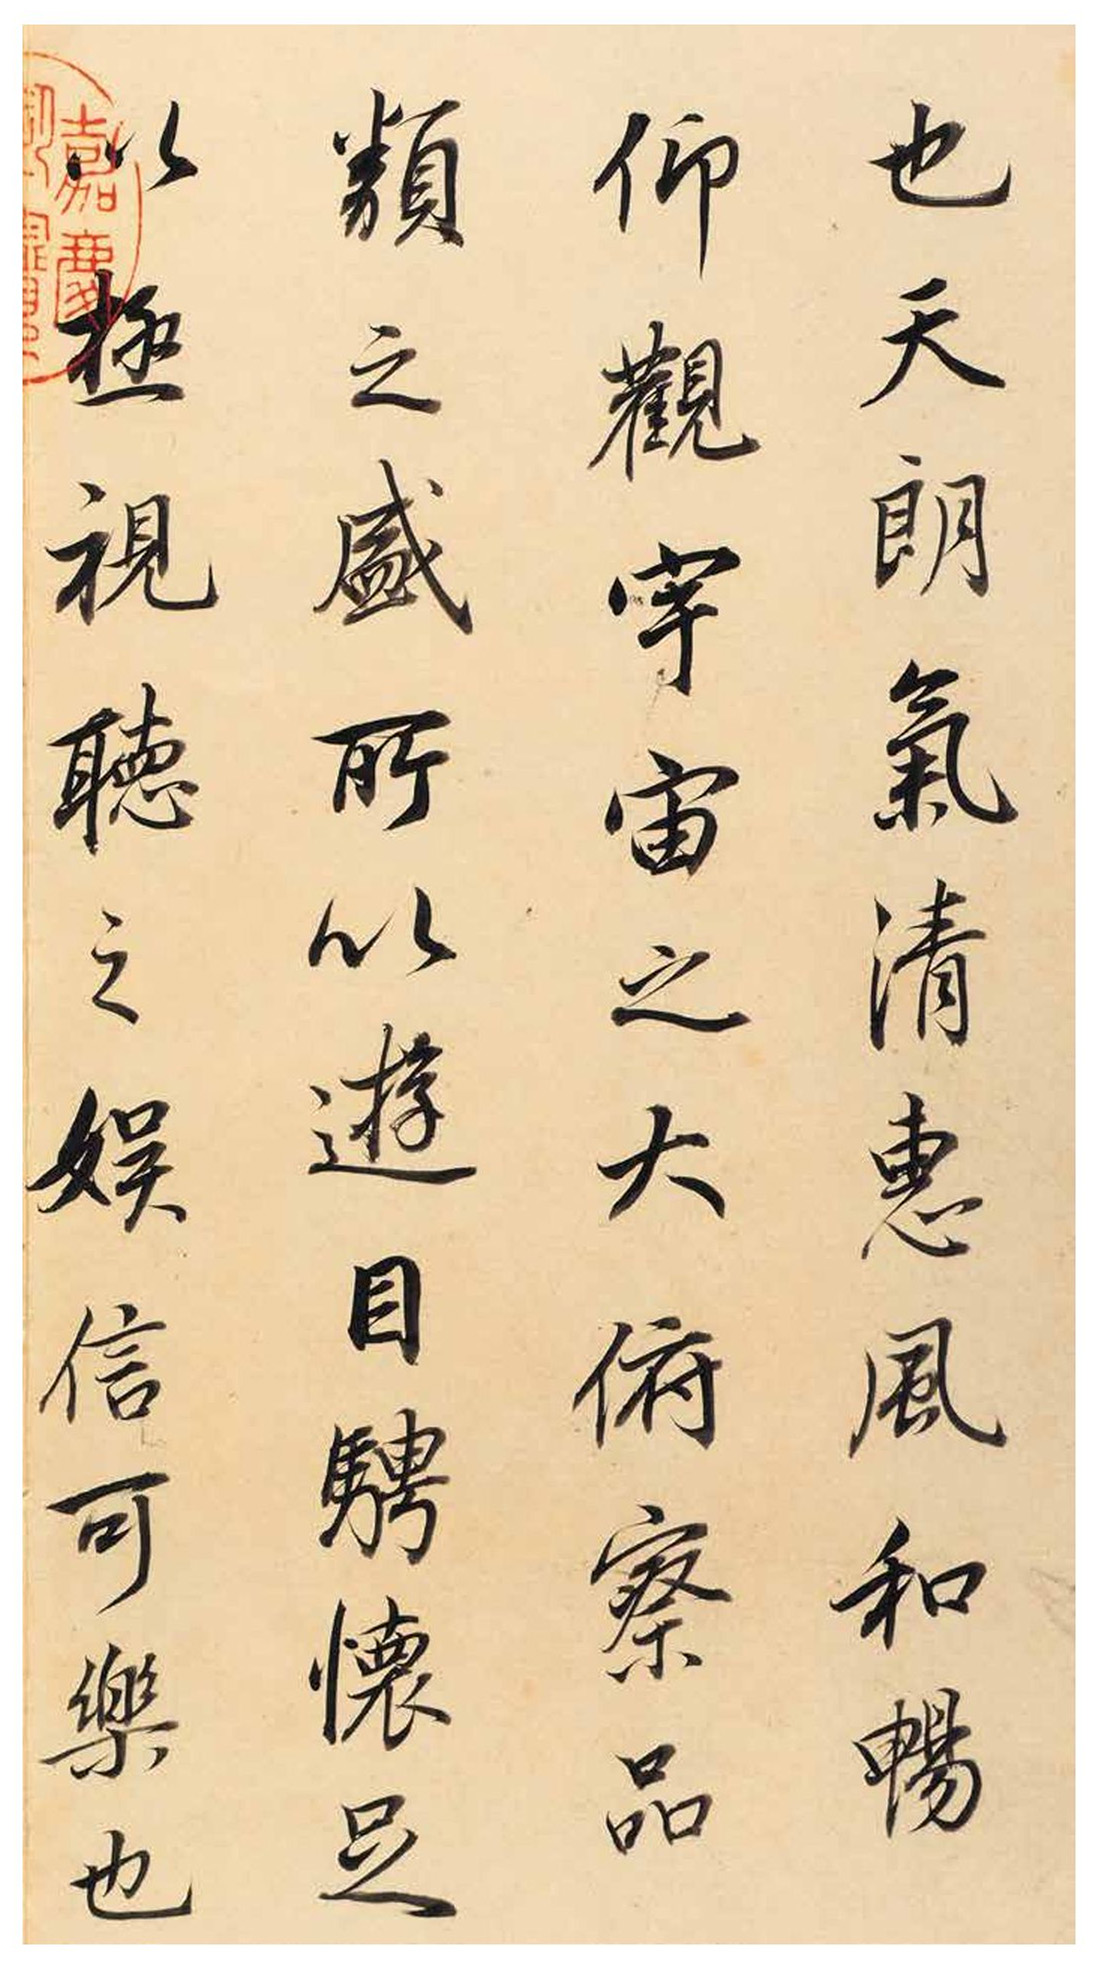 也天朗氣清惠風和暢
仰觀宇宙之大俯察品
類之盛所以遊目騁懷足
以極視聽之娛信可樂也
嘉慶